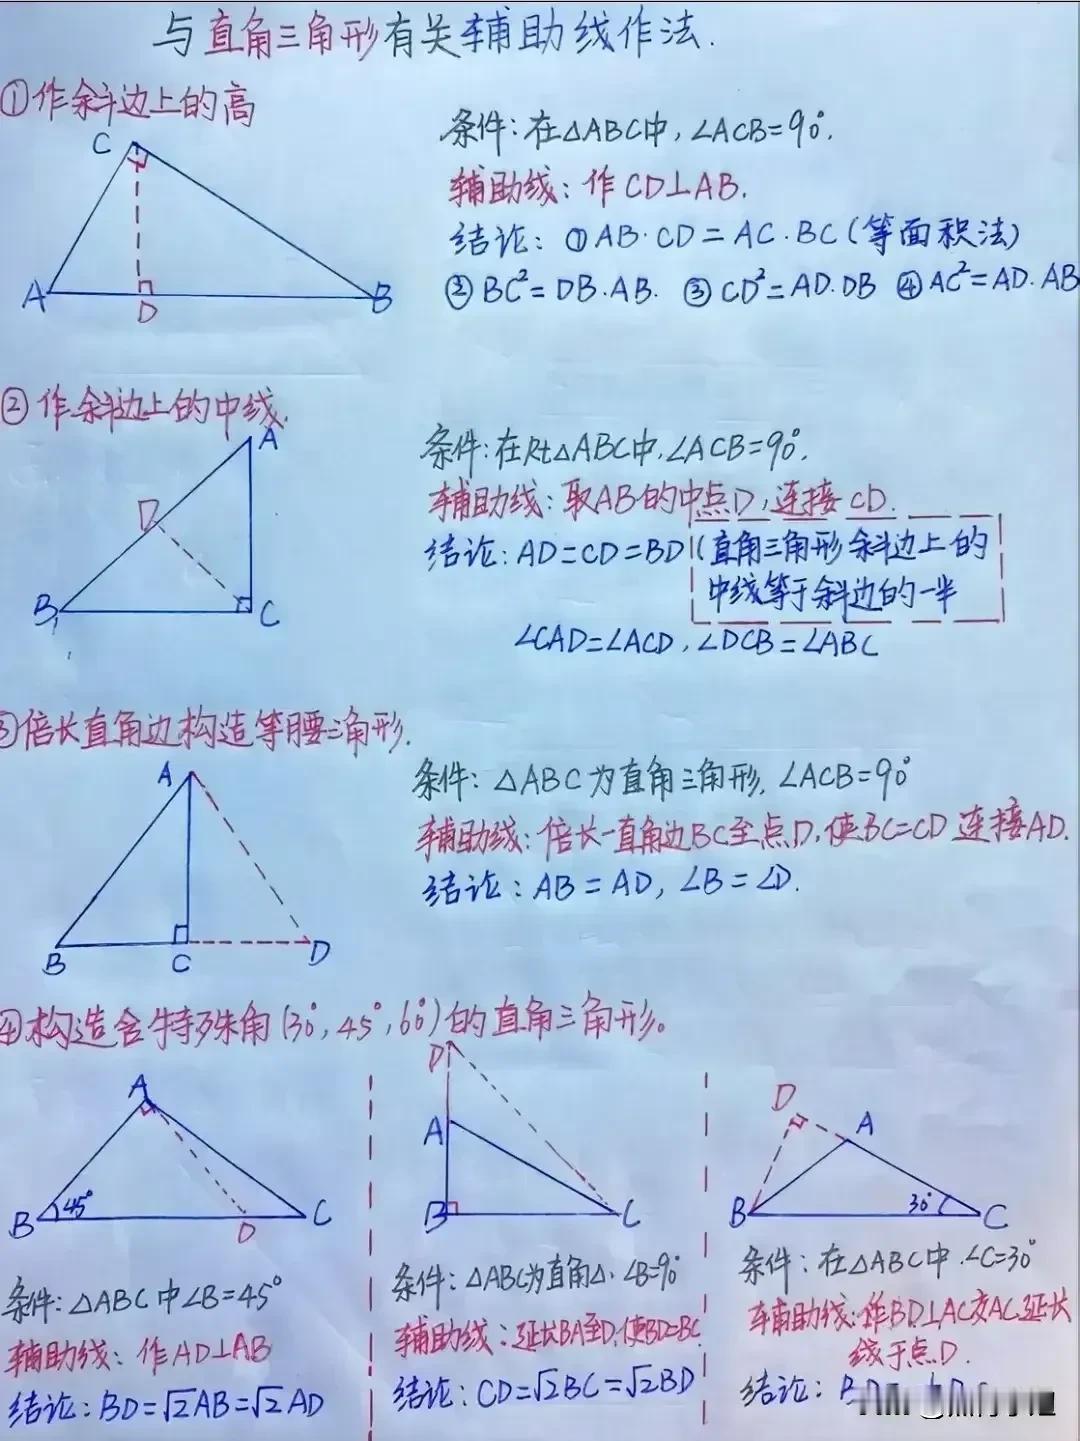 与直角三角形有关辅助线作法.
①作斜边上的高
C
A
D
B
条件:在△ABC中,∠ACB=90°.
辅助线:作CD⊥AB.
结论:①AB·CD=AC·BC(等面积法)
②BC²=DB·AB. ③CD²=AD·DB ④AC²=AD·AB
②作斜边上的中线.
A
D
B
C
条件:在Rt△ABC中,∠ACB=90°.
辅助线:取AB的中点D,连接CD.
结论:AD=CD=BD(直角三角形斜边上的
中线等于斜边的一半
∠CAD=∠ACD,∠DCB=∠ABC
③倍长直角边构造等腰三角形.
A
B
C
D
条件:△ABC为直角三角形,∠ACB=90°
辅助线:倍长一直角边BC至点D,使BC=CD连接AD.
结论:AB=AD,∠B=∠D.
④构造含特殊角(30°,45°,60°)的直角三角形。
A
B
45°
D
C
条件:△ABC中∠B=45°
辅助线:作AD⊥AB
结论:BD=√2AB=√2AD
D
A
B
C
条件:△ABC为直角△.∠B=90°
辅助线:延长BA至D,使BD=BC
结论:CD=√2BC=√2BD
D
A
B
30°
C
条件:在△ABC中.∠C=30°
辅助线:作BD⊥AC交AC延长
线于点D.
结论: